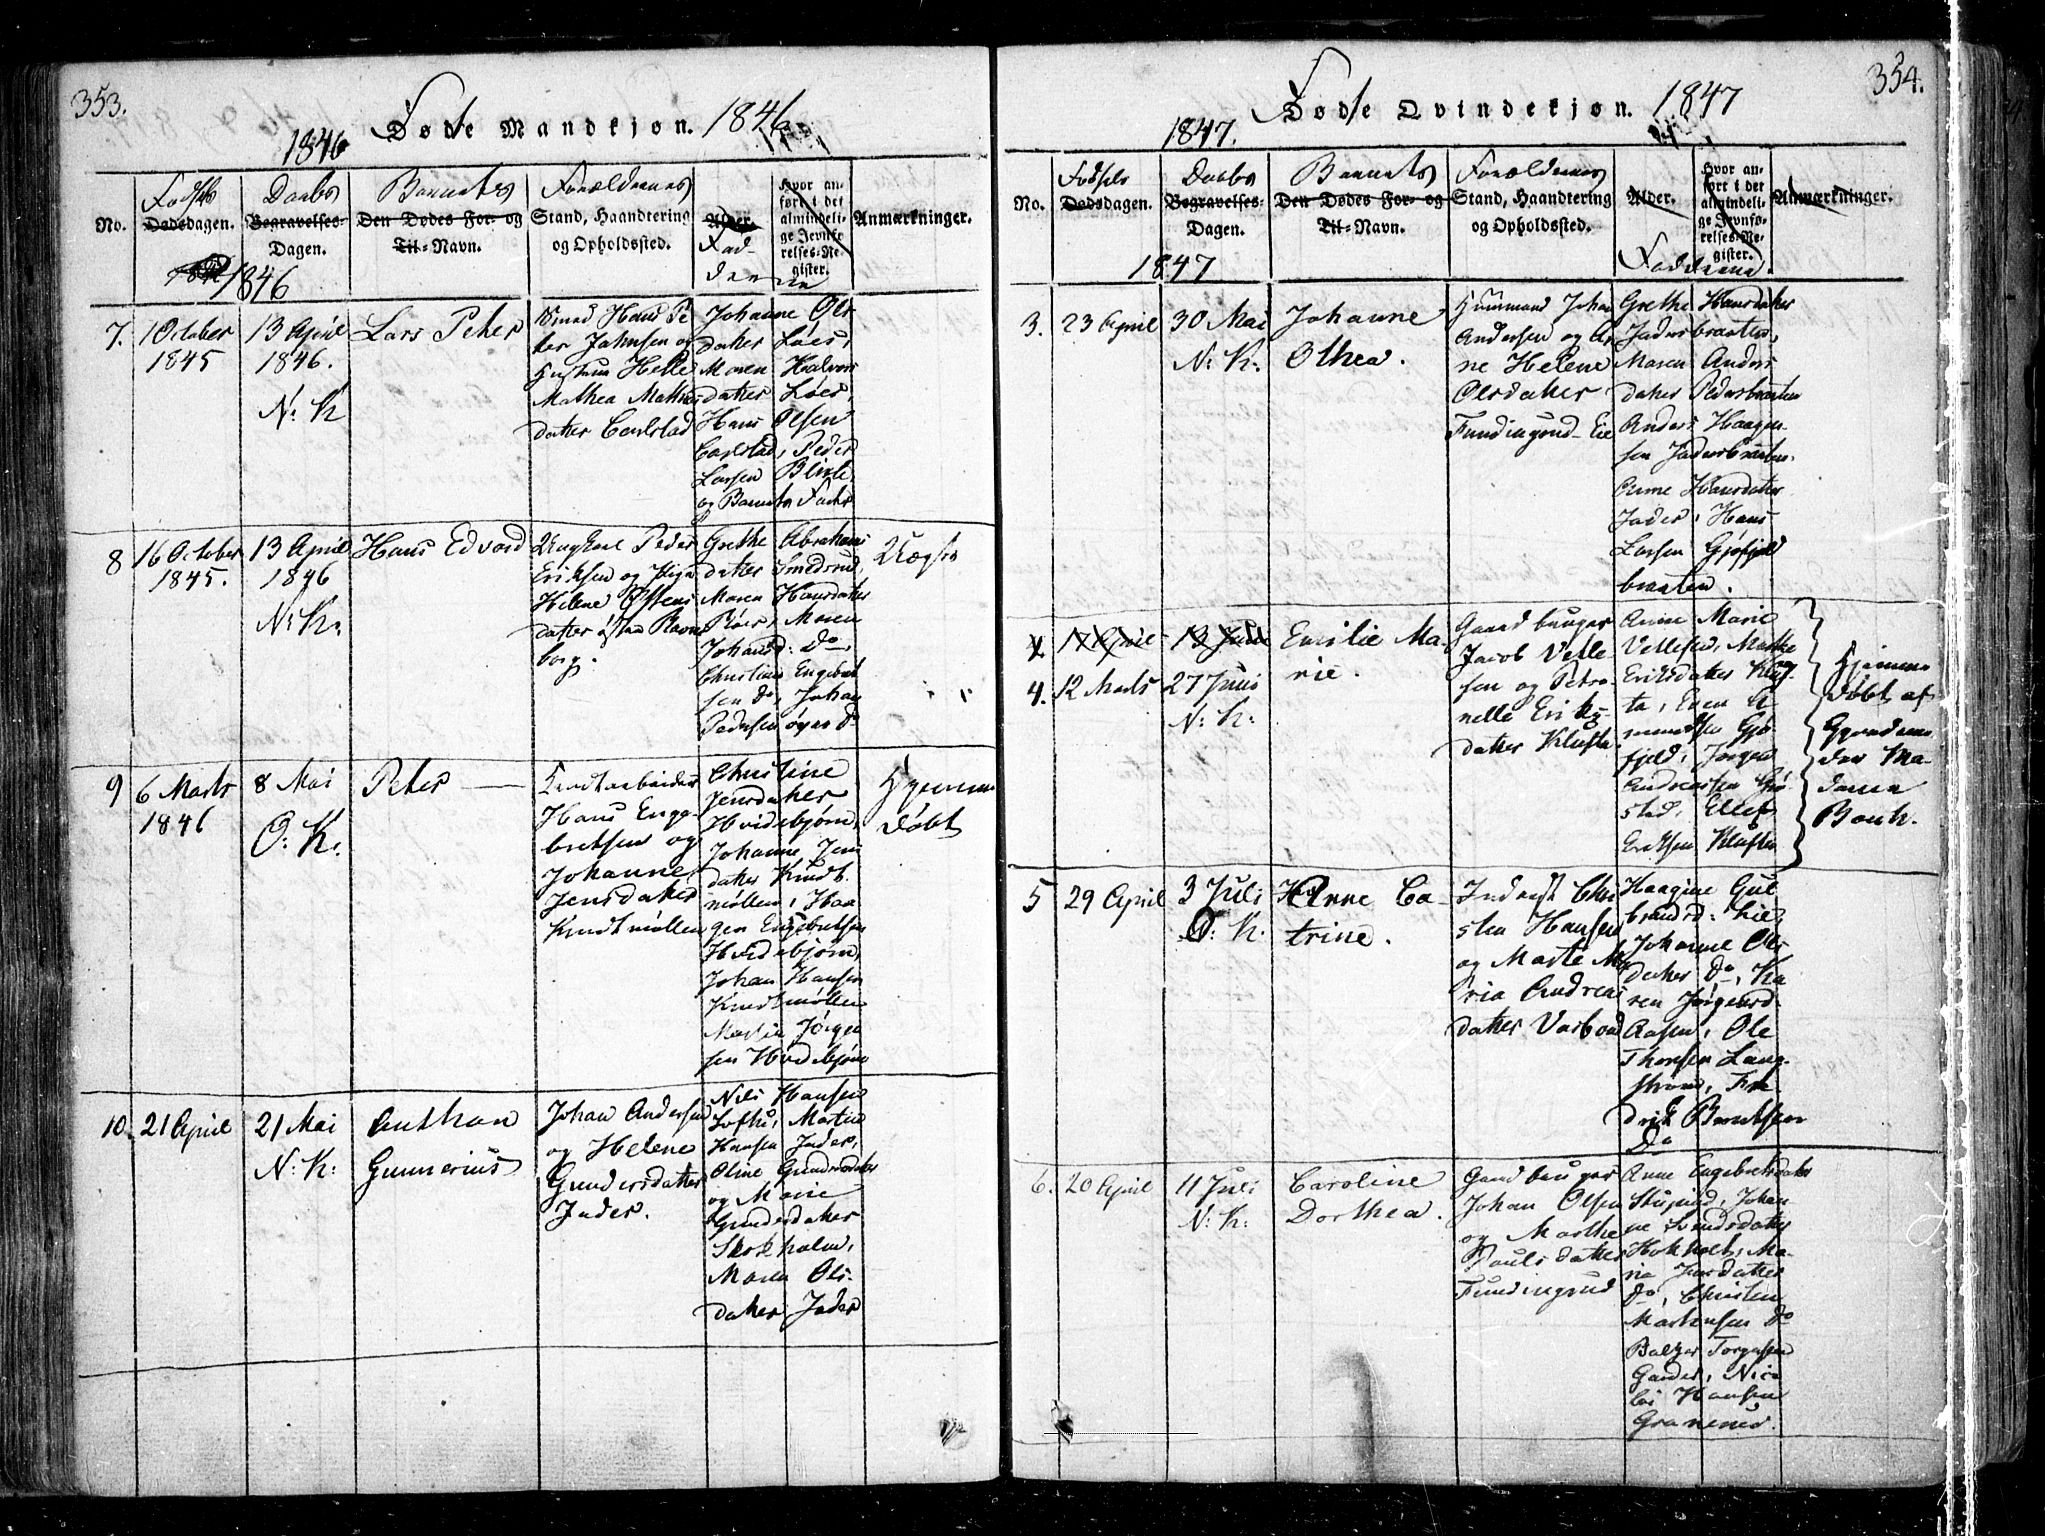 353.
Fødte Mandkjøn. 1846
1846
No.
Fødsels
Dødsdagen.
Daabs
Begravelses-
Dagen.
Barnets
Den Dødes For- og
Til-Navn.
Forældrenes
Stand, Haandtering
og Opholdssted.
Alder.
Fad-
derne
Hvor an-
ført i det
almindeli-
ge Jevnfø-
relses-Re-
gister.
Anmærkninger.
1846
7.
1 October
1845
13 April
1846.
N: K
Lars Peter
Hans Pe
ter Jahnsen og
Hustrue Helle
Mathea Mathis
datter Carlstad
Johanne Ols-
datter Løes,
Maren Halvors
datter Løes,
Hans Olsen
Carlstad, Peder
Larsen Blixle,
og Barnets Fader
8
16 October
1845.
13 April
1846
N: K:
Hans Edvard
Ungkarl Peder
Eriksen og Pige
Helene
datter Ravns
borg.
Grethe Abrahams
datter Smedsrud,
Maren Hansdatter
Røer, Maren
Johansd: Do,
Christian Engebret
sen do, Johan
Pedersen do
Uægte
9
6 Marts
1846
8 Mai
O: K:
Peter
Hans Enge-
bretsen og
Johanne
Jensdatter
Krudtmøllen
Christine
Jensdatter
Hvidebjørn,
Johanne Jens
datter Krudt
møllen, Haa
gen Engebretsen
Hvidebjørn,
Johan Hansen
Krudtmøllen
Martin Jørgen
sen Hvidebjørn
Hjemme
døbt
10.
21 April
21 Mai
N: K:
Anthon
Gunnerius
Johan Andersen
og Helene
Gundersdatter
Jader.
Nils Hansen
Lofthu, Martin
Hansen Jader,
Oline Gundersdatter
og Marie
Gundersdatter
Skokholm,
Maren Ols-
datter Jader
354.
Fødte Qvindekjøn. 1847
1847.
No.
Fødsels
Dødsdagen.
Daabs
Begravelses-
Dagen.
Barnets
Den Dødes For- og
Til-Navn.
Forældrenes
Stand, Haandtering
og Opholdssted.
Alder.
Hvor an-
ført i det
almindeli-
ge Jevnfø-
relses-Re-
gister.
Anmærkninger.
Fadderne.
1847
3.
23 April
30 Mai
N: K:
Johanne
Othea.
Huusmand Johan
Andersen og An
ne Helene
Olsdatter
Fundingsrud-Eie
Grethe Hansdatter
Jadersbraaten,
Maren Anders
datter Pedersbraaten
Anders Haagen-
sen Jadersbraaten
Anne Hansdatter
Jader, Hans
Larsen Gjøfjeld
braaten.
4.
17 April
13 Juni
4.
12 Marts
27 Juni
N: K:
Emilie Ma-
rie.
Gaardbruger
Jacob Velle
sen og Petro-
nelle Eriks-
datter Klufta
Anne Marie
Vellesen, Marthe
Eriksdatter Kluf
ta, Even A
mundsen Gjø
fjeld, Jørgen
Andreassen Gjø
stad, Ellef
Eriksen Kluften
Hjemme
døbt af
Gjordemo
der Ma-
dame
Bonk.
5
29 April
3 Juli
O: K:
Anne Ca-
trine.
Inderst Chri
sten Hansen
og Marte Ma
ria Andreas
datter Varboud
Haagine Gul
brandsd: Lie,
Johanne Ols
datter do, Ka
ren Jørgensd-
Aasen, Ole
Thorsen Lang-
strøm, Fre
drik Berntsen
Do
6.
20 April
11 Juli
N: K:
Caroline
Dorthea.
Gaardbruger
Johan Olsen
og Marthe
Paulsdatter
Fundingsrud
Anne Engebretsdatter
Johan-
ne Svendsdatter
Hokholt, Ma-
ria Jensdatter
do, Christen
Mortensen do
Baltzer Torgersen
Gander, Nico
lai Hansen
Granerud.